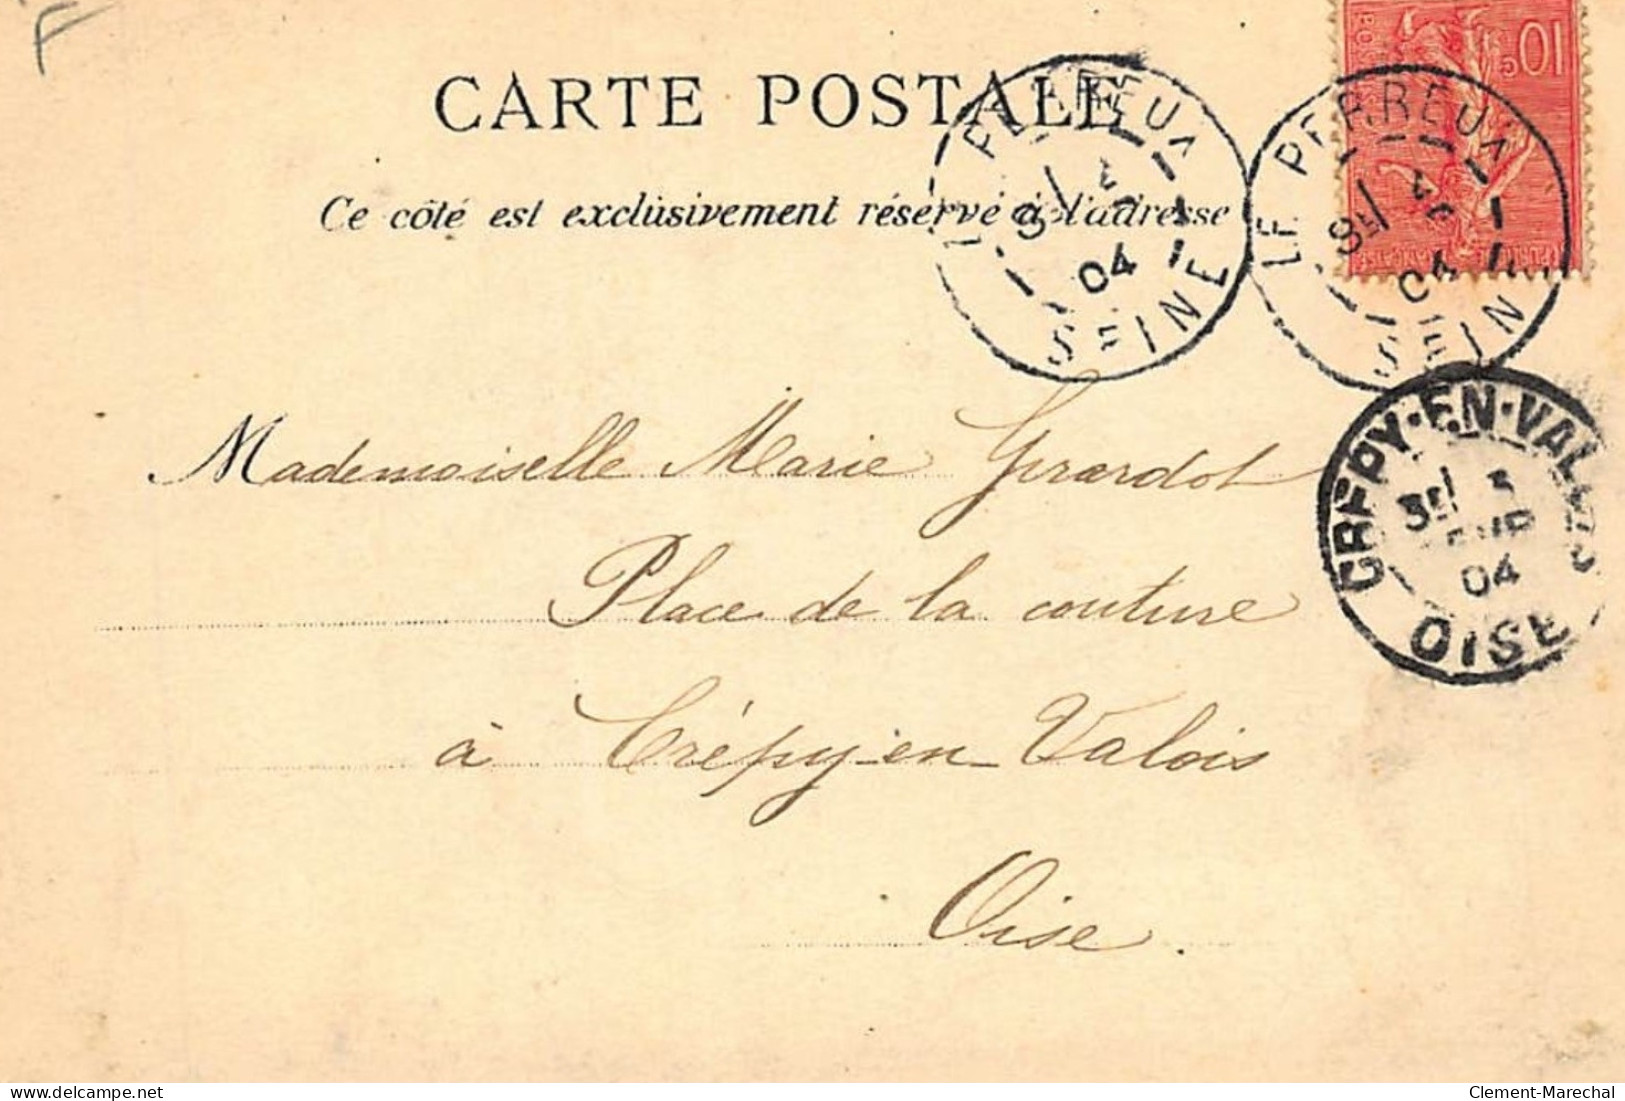 F
CARTE POSTALE
Ce côté est exclusivement réservé à l'adresse
LE PERREUX
04
SEINE
LE PERREUX
04
SEINE
10c
CREPY-EN-VALOIS
3
04
OISE
Mademoiselle Marie Girardot
Place de la couture
à Crépy-en-Valois
Oise.
© delcampe.net
Clement-Marechal